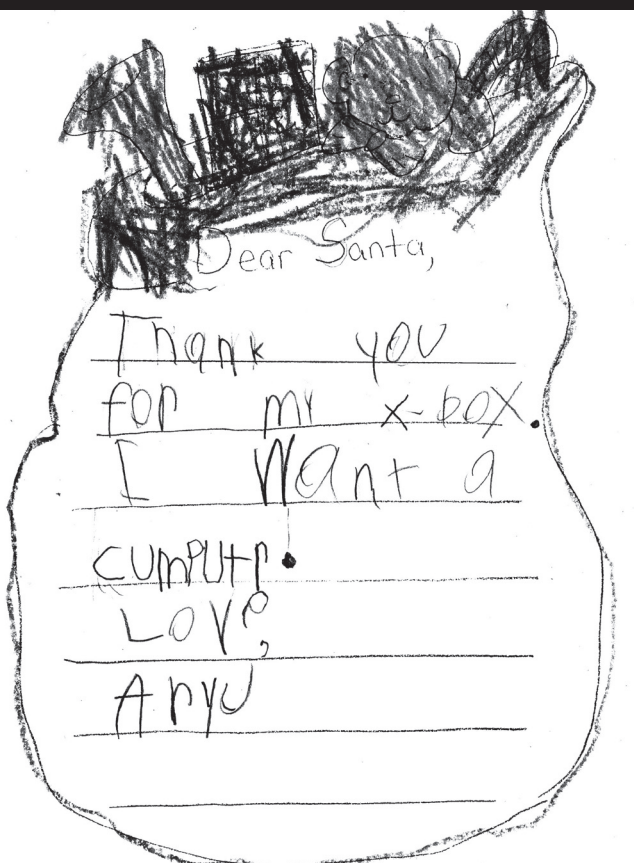 Dear Santa,
Thank you
for my x-box.
I Want a
cumputr.
Love,
Aryu